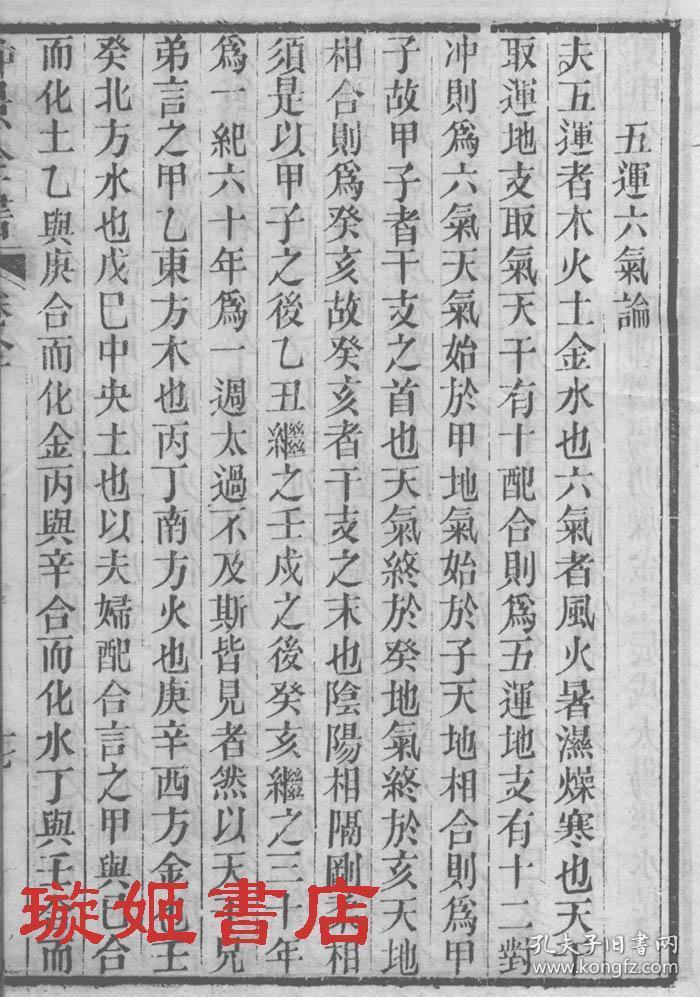 五運六氣論
夫五運者木火土金水也六氣者風火暑濕燥寒也天干
取運地支取氣天干有十配合則爲五運地支有十二對
冲則爲六氣天氣始於甲地氣始於子天地相合則爲甲
子故甲子者干支之首也天氣終於癸地氣終於亥天地
相合則爲癸亥故癸亥者干支之末也陰陽相隔剛柔相
須是以甲子之後乙丑繼之壬戌之後癸亥繼之三十年
爲一紀六十年爲一週太過不及斯皆見者然以天干兄
弟言之甲乙東方木也丙丁南方火也庚辛西方金也壬
癸北方水也戊巳中央土也以夫婦配合言之甲與已合
而化土乙與庚合而化金丙與辛合而化水丁與壬合而
璇姬書店
孔夫子旧書网
www.kongfz.com